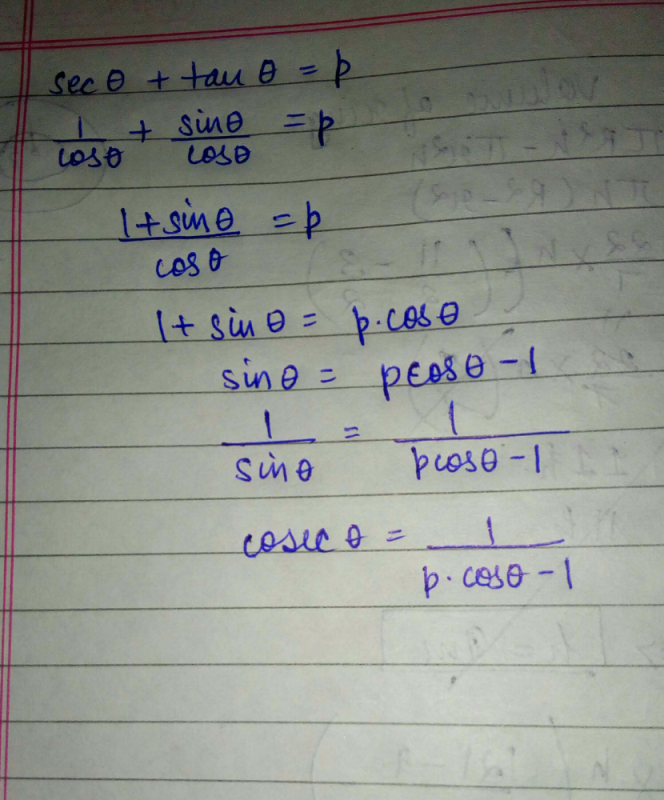 secθ + tanθ = p
1/cosθ + sinθ/cosθ = p
1+sinθ/cosθ = p
1+ sinθ = p·cosθ
sinθ = pcosθ-1
1/sinθ = 1/pcosθ-1
cosecθ = 1/p·cosθ-1